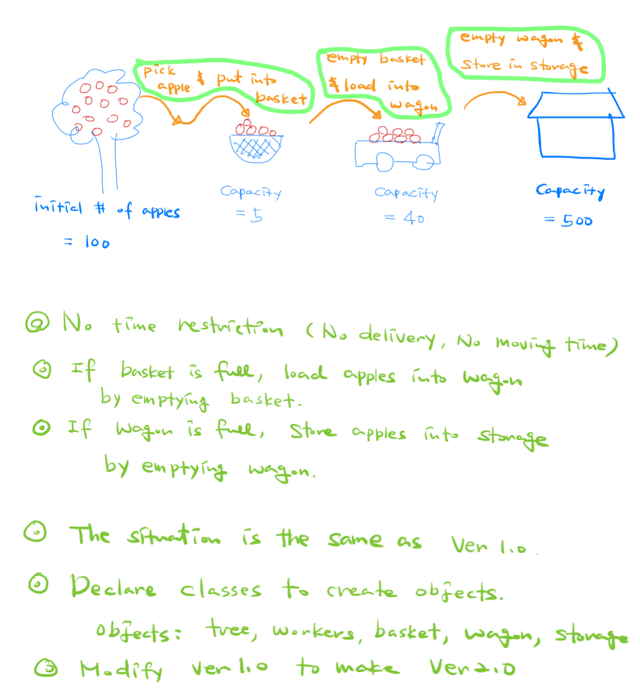 pick
apple & put into
basket
empty basket
& load into
wagon
empty wagon &
store in storage
initial # of apples
= 100
Capacity
= 5
Capacity
= 40
Capacity
= 500
No time restriction (No delivery, No moving time)
If basket is full, load apples into wagon
by emptying basket.
If wagon is full, store apples into storage
by emptying wagon.
The situation is the same as Ver 1.0.
Declare classes to create objects.
objects: tree, workers, basket, wagon, storage
Modify Ver 1.0 to make Ver 2.0